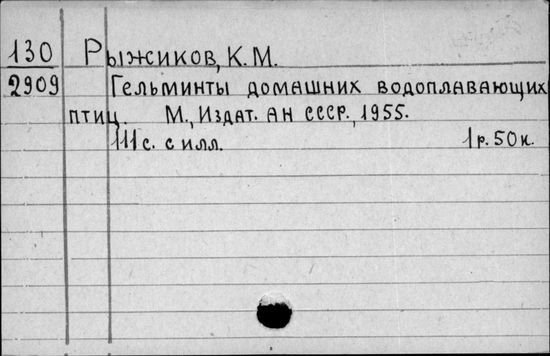 130 Рыжиков, К. М.
2909 Гельминты домашних водоплавающих
птиц. М., Издат. АН СССР, 1955.
111 с. с илл. 1 р. 50 к.